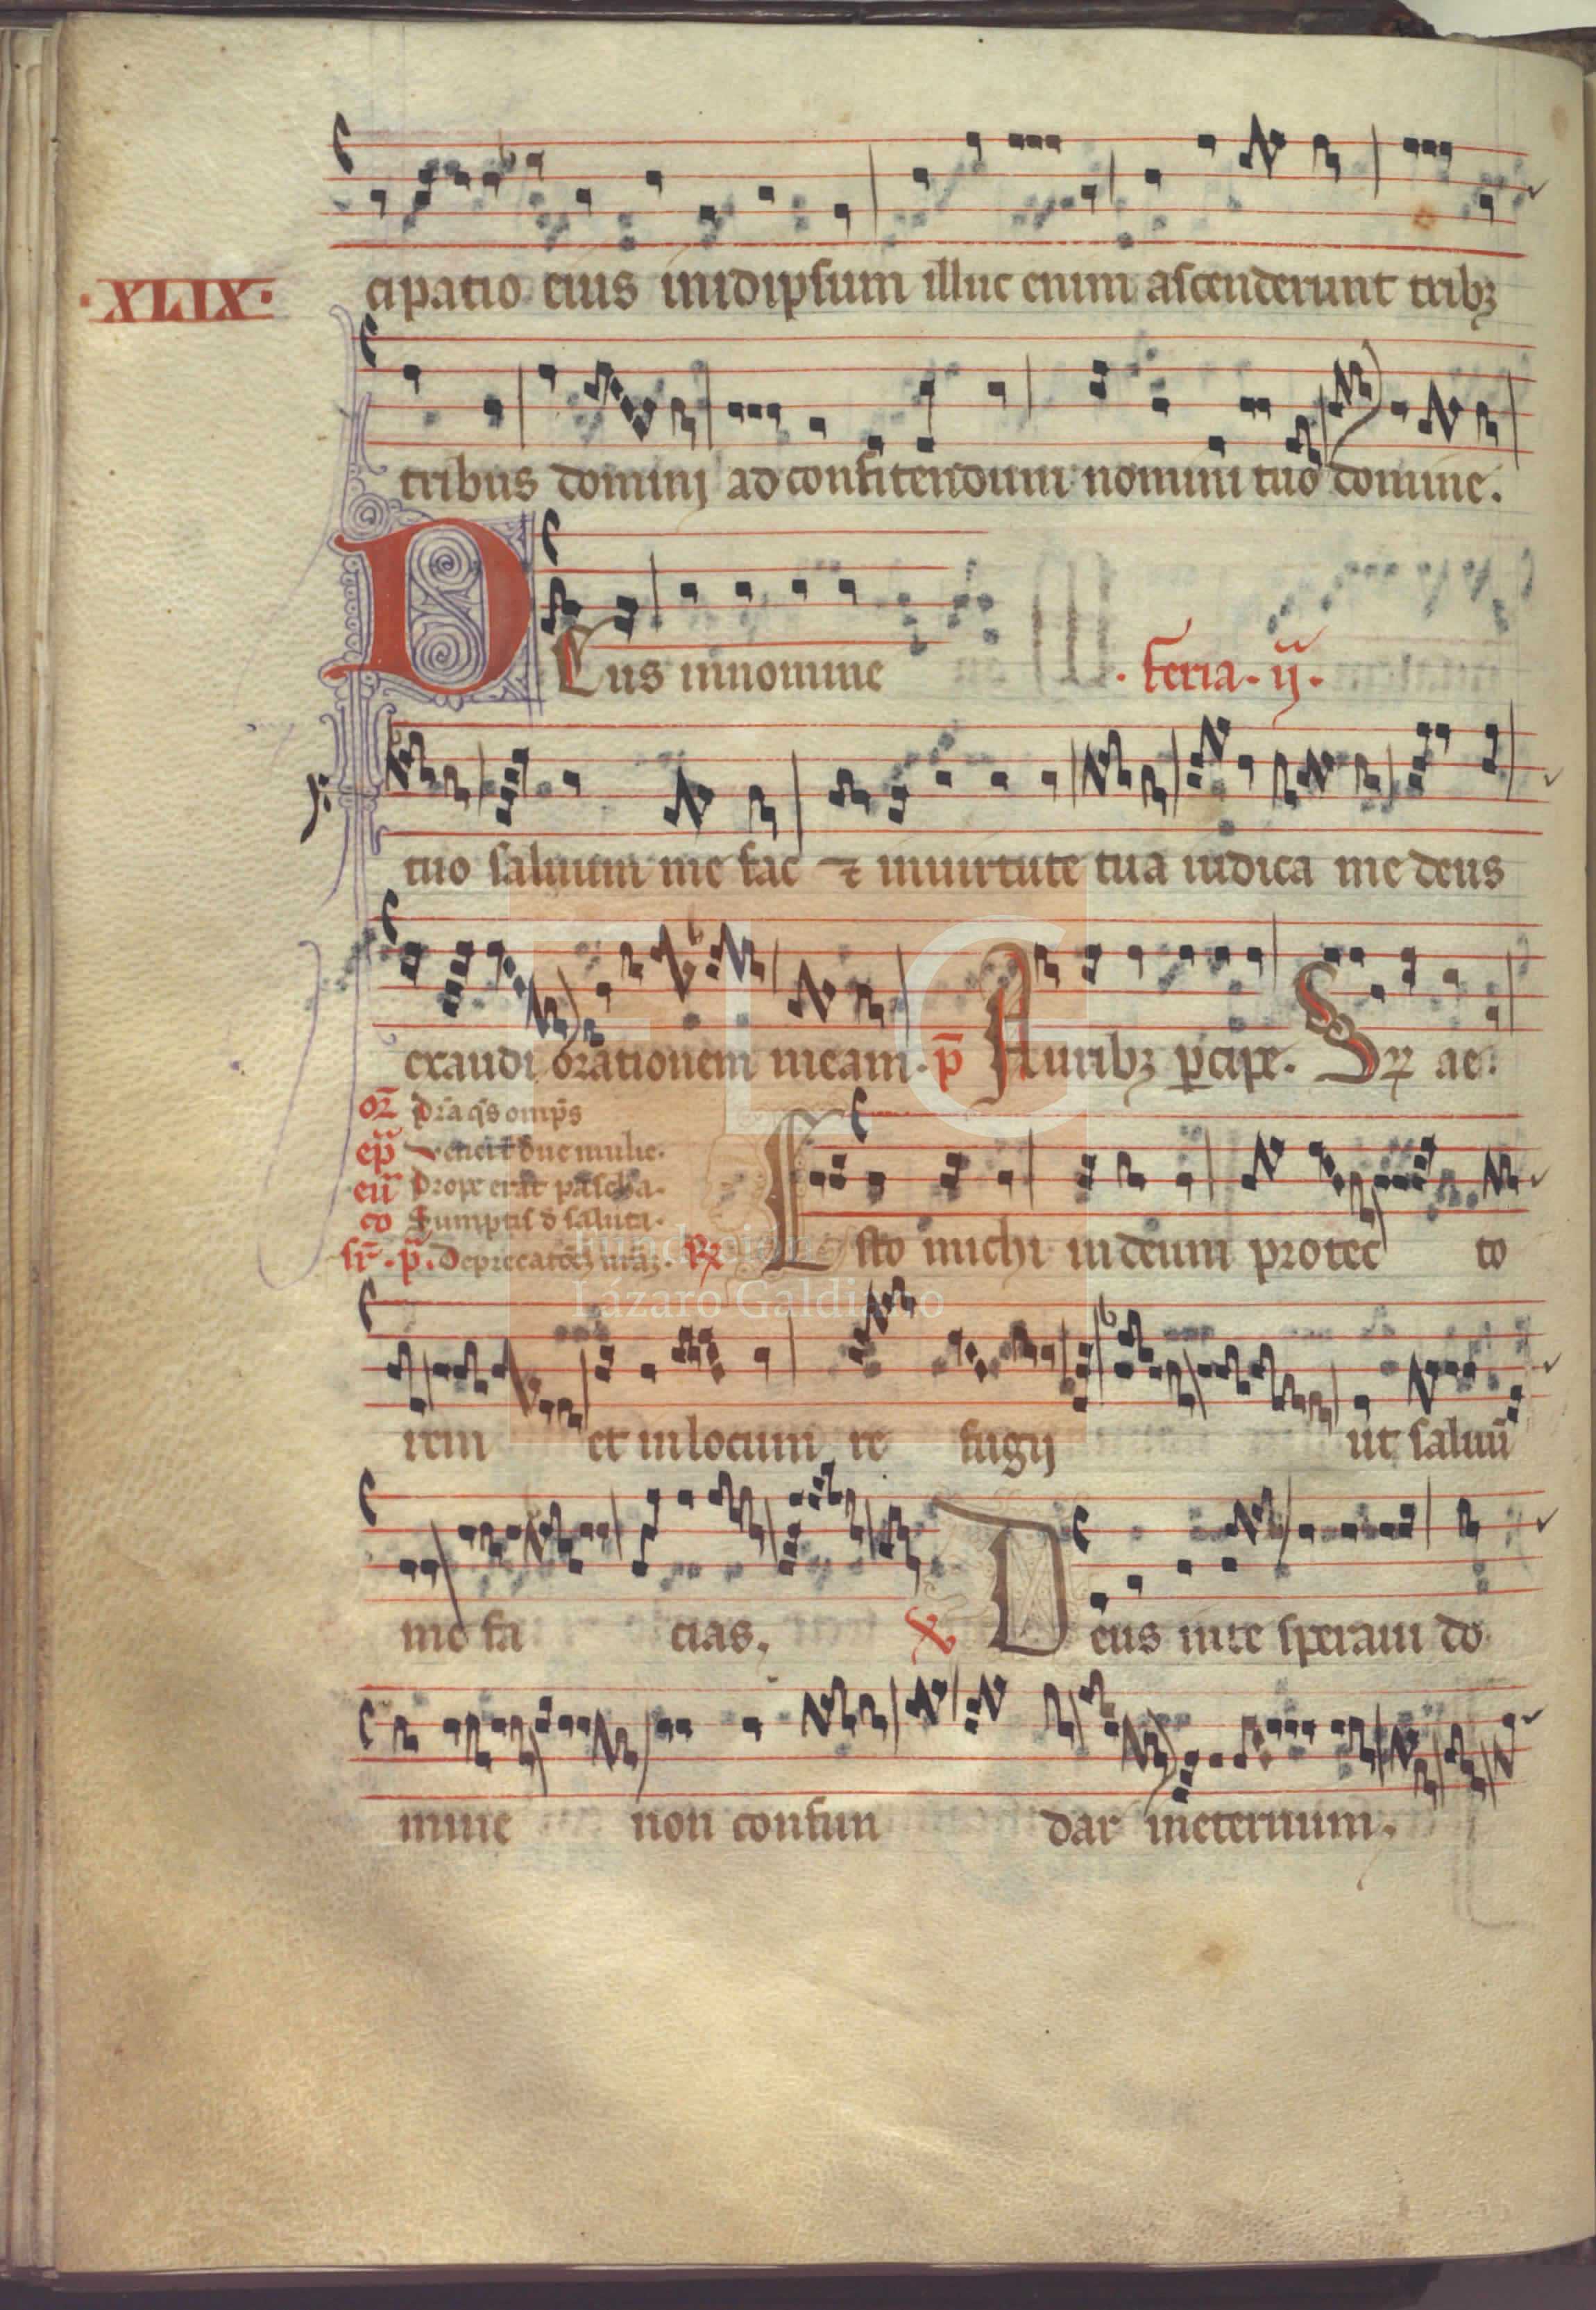 cipatio eius inidipsum illuc enim ascenderunt tribꝫ
·XLIX·
tribus dominj ad confitendum nomini tuo domine.
DEus innomine
· feria · ij ·
tuo saluum me fac ⁊ inuirtute tua iudica me deus
exaudi orationem meam · p̄ Auribꝫ ꝑcipe. Sꝝ ae:
or̄ p̄ra q̄s omp̄s
ep̄ Venerūt due mulie.
eū Prope erat pascha.
co Sumptis
sr̄ · p̄. Deprecatōeꝫ nr̄aꝫ.
℞ Esto michi indeum protec to
rem et inlocum re fugij ut saluū
me fa cias.
℣ Deus inte speraui do
mine non confun dar ineternum.
FLG
Fundación
Lázaro Galdiano